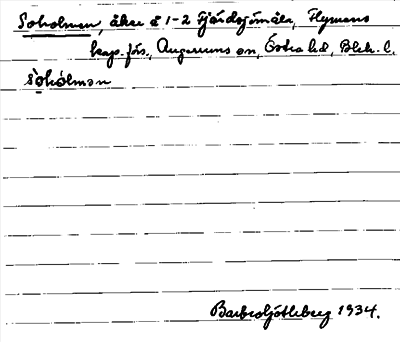 Soholmen, åker å 1-2 Fjärdsjömåla, Flymens
kap. förs., Augerums sn, Östra hd, Blek. l.
sòhólmən
Barbro Götleberg 1934.